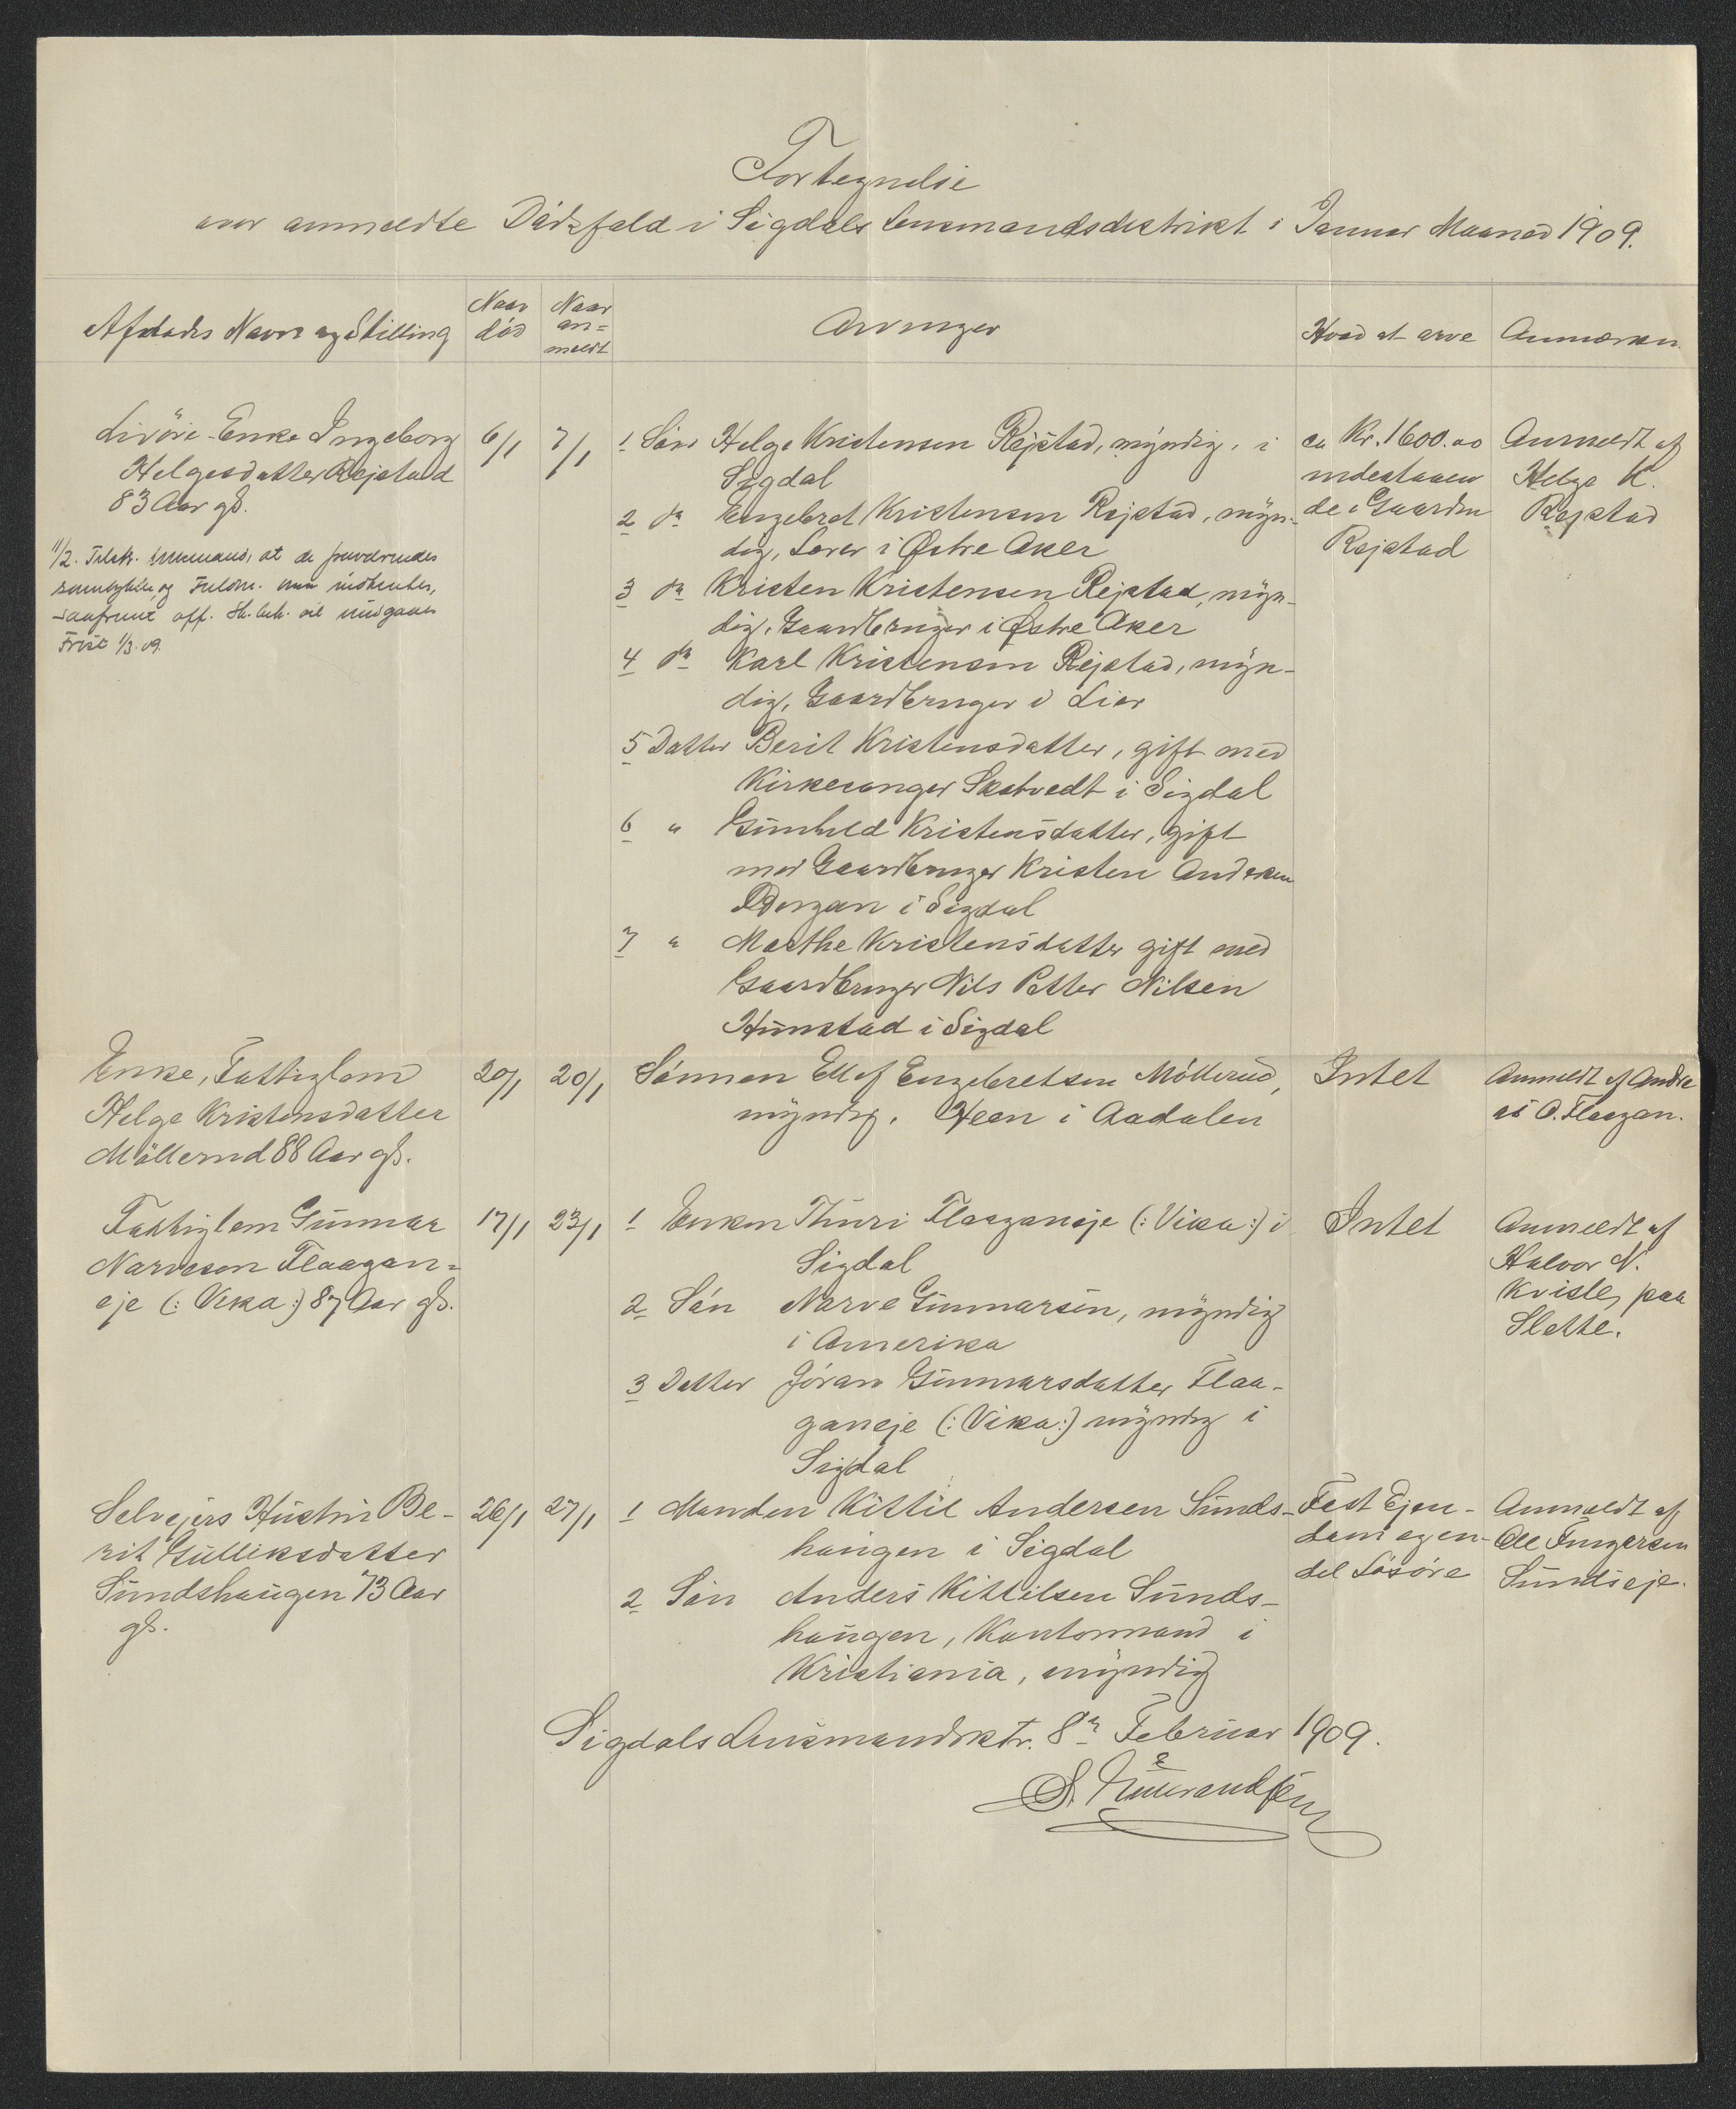 Fortegnelse
over anmeldte Dödsfald i Sigdals Lensmandsdistrikt i Januar Maaned 1909.
Afdødes Navn og Stilling
Naar död
Naar an=
meldt
Arvinger
Hvad at arve
Anmærkn.
Livöre-Enke Ingeborg
Helgesdatter Rejstad
83 Aar gl.
6/1
7/1
1 Sön Helge Kristensen Rejstad, myndig, i
Sigdal
2 do Engebret Kristensen Rejstad, myn-
dig, Lærer i Østre Aker
3 do Kristen Kristensen Rejstad, myn-
dig, Gaardbruger i Østre Aker
4 do Karl Kristensen Rejstad, myn-
dig, Gaardbruger i Lier
5 Datter Berit Kristensdatter, gift med
Kirkesanger Skatvedt i Sigdal
6 " Gunhild Kristensdatter, gift
med Gaardbruger Kristen Andersen
i Sigdal
7 " Marthe Kristensdatter gift med
Gaardbruger Nils Petter Nilsen
Hunstad i Sigdal
ca Kr. 1600.00
indestaaen
de i Gaarden
Rejstad
Anmeldt af
Helge K.
Rejstad
1/2. at de
og Fuldm. maa indhentes,
off. Sk.beh. vil
Frist 1/3.09.
Enke, Fattiglem
Helge Kristensdatter
Möllerud 88 Aar gl.
20/1
20/1
Sönnen Ellef Engebretsen Möllerud,
myndig. Heen i Aadalen
Intet
Anmeldt af Andre
as O. Flaagan.
Fattiglem Gunnar
Narvesen Flaagan=
eje (: Vika :) 87 Aar gl.
17/1
23/1
1 Enken Thuri Flaaganeje (: Vika :) i
Sigdal
2 Sön Narve Gunnarsen, myndig
i Amerika
3 Datter Jöran Gunnarsdatter Flaa-
ganeje (: Vika :) myndig i
Sigdal
Intet
Anmeldt af
Halvor N.
Kvisle, paa
Slette.
Selvejers Hustru Be-
rit Gulliksdatter
Sundshaugen 73 Aar
gl.
26/1
27/1
1 Manden Kittil Andersen Sunds-
haugen i Sigdal
2 Sön Anders Kittilsen Sunds-
haugen, Kontormand i
Kristiania, myndig
Fast Ejen-
dom og en
del Lösöre
Anmeldt af
Ole Ingersen
Sundseje.
Sigdals Lensmandsktr. 8de Februar 1909.